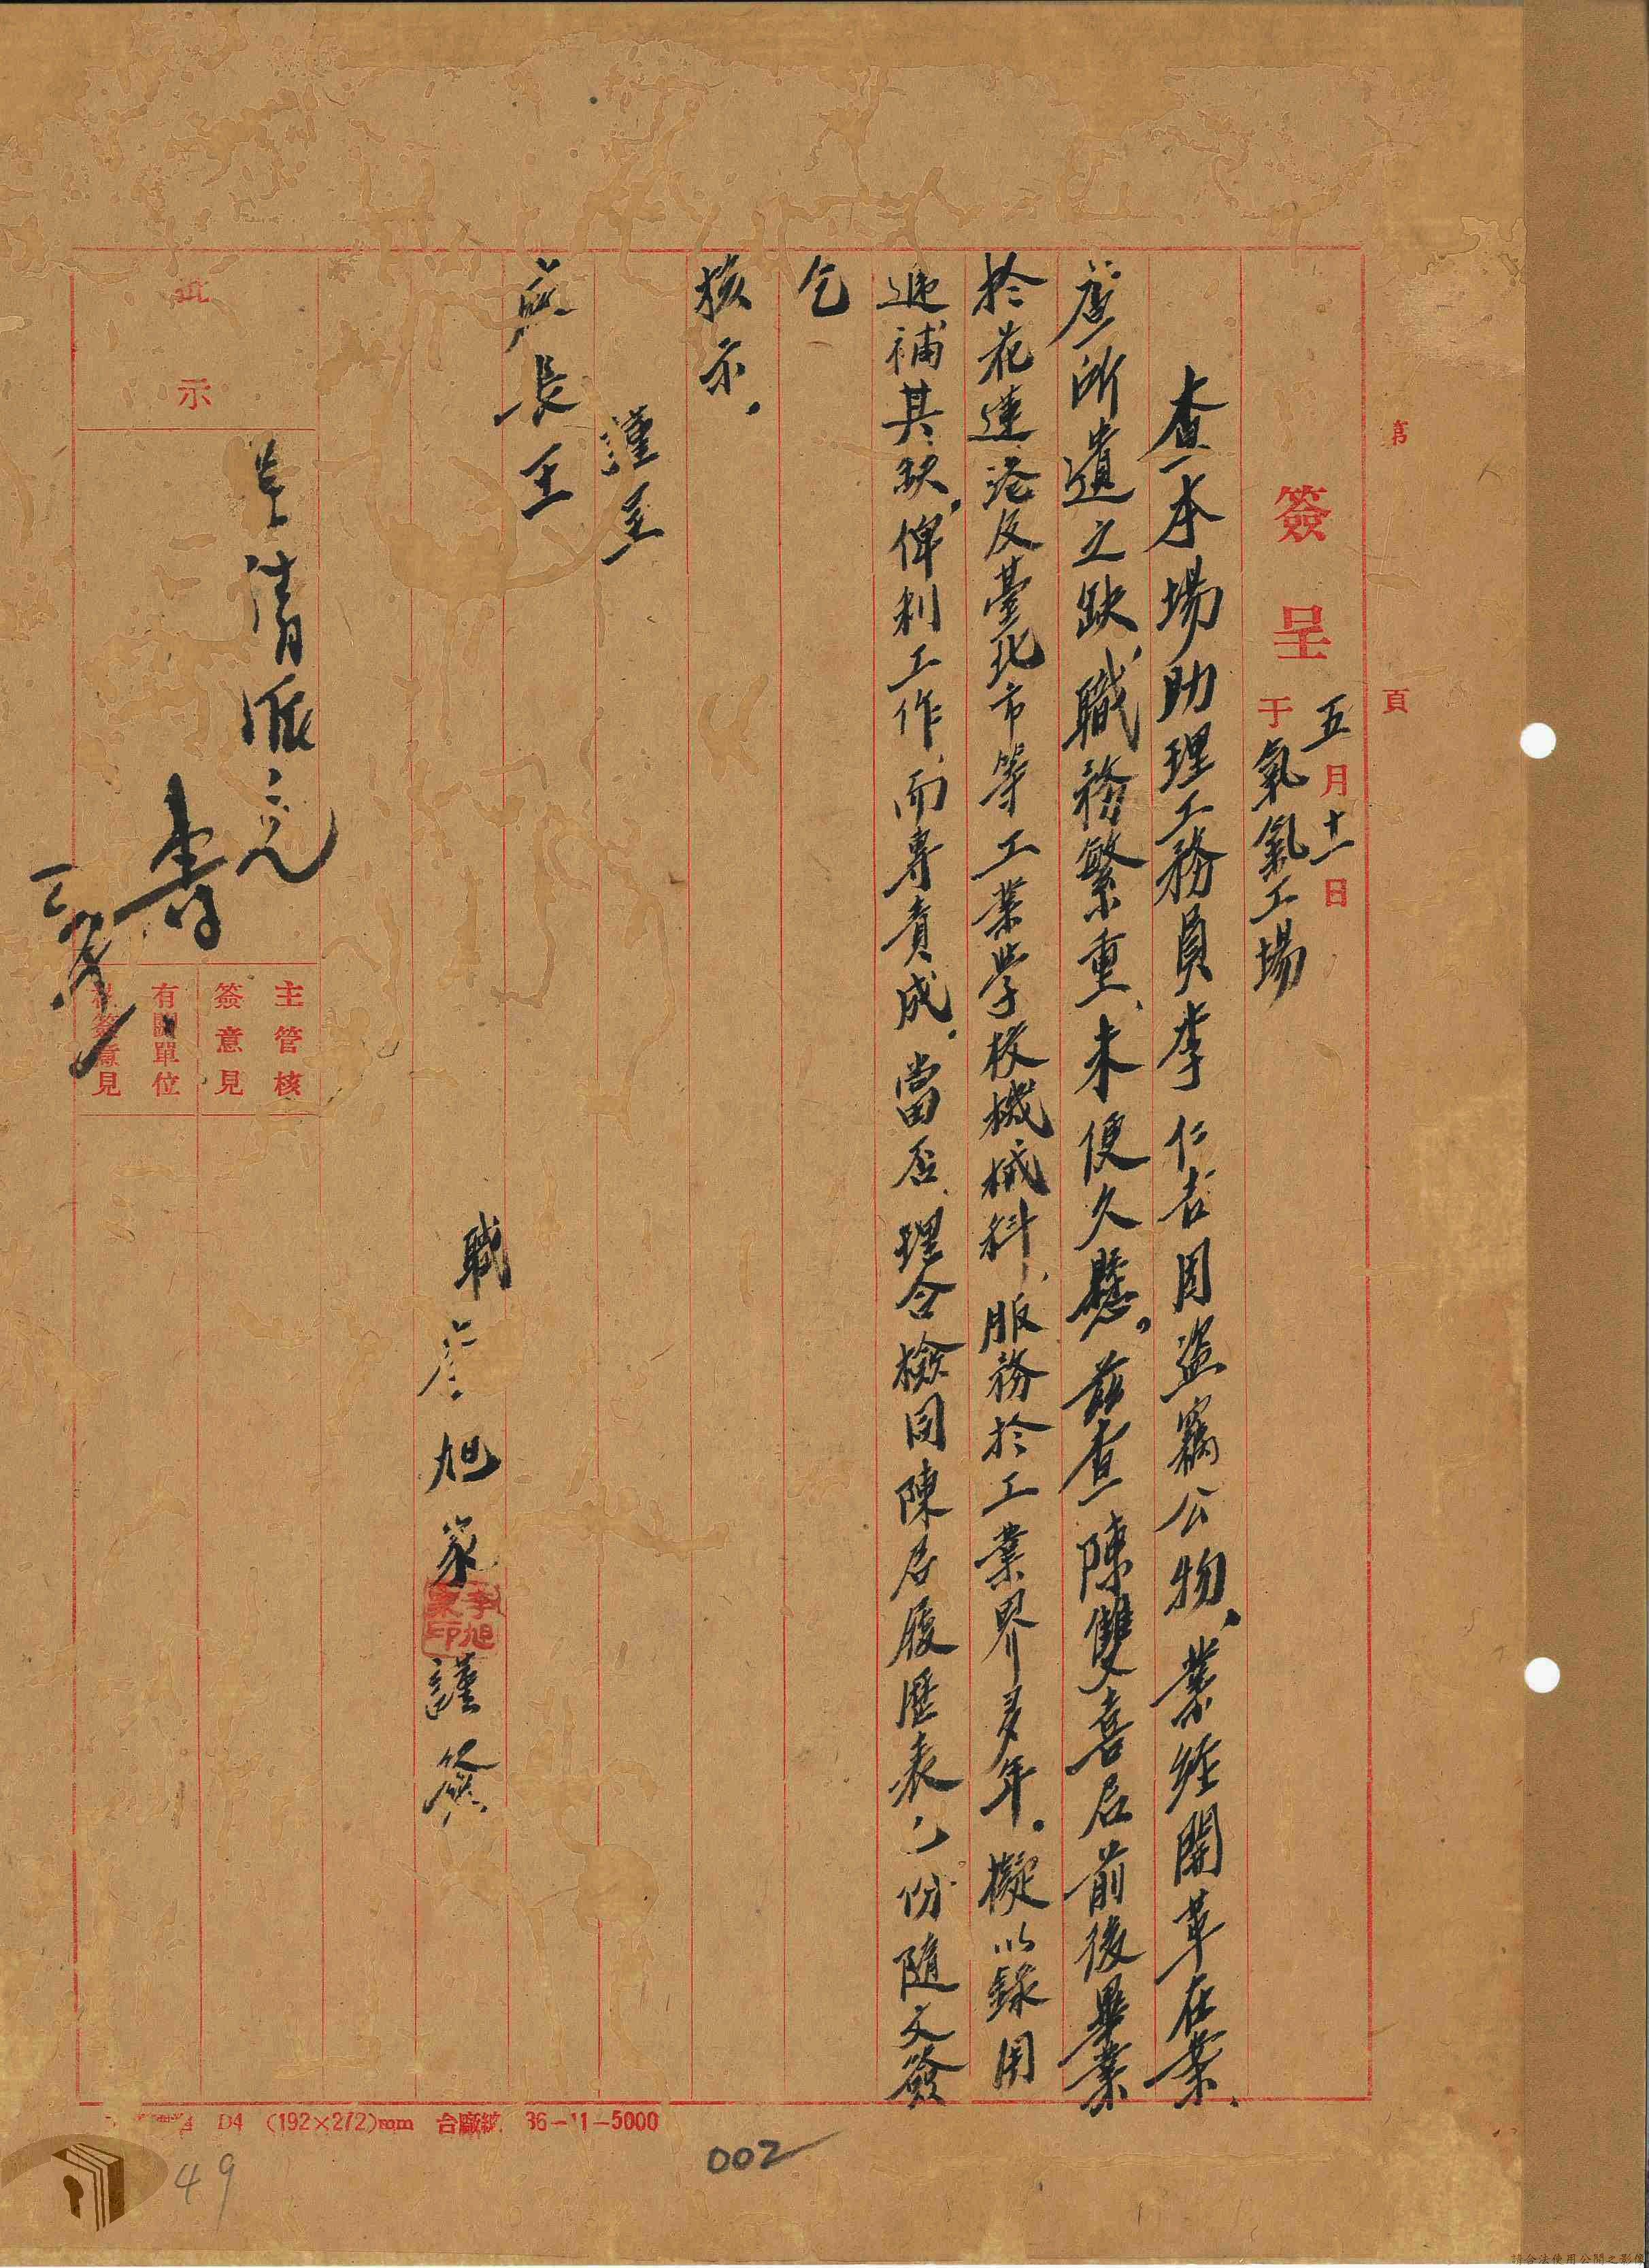 第 頁
簽呈 五月十一日
于氧氣工場
查本場助理工務員李仁杏因盜竊公物、業經開革在案、
查所遺之缺、職務繁重、未便久懸。茲查陳雙喜君前後畢業
於花蓮港及臺北市等工業學校機械科、服務於工業界多年。擬以錄用
遞補其缺。俾利工作、而專責成。當否、理合檢同陳君履歷表乙份隨文簽
乞
核示。
謹呈
廠長王
職李旭家謹簽
李旭家印
示
主管核
簽意見
有關單位
簽意見
D4 (192×272)mm 36-11-5000
002
49